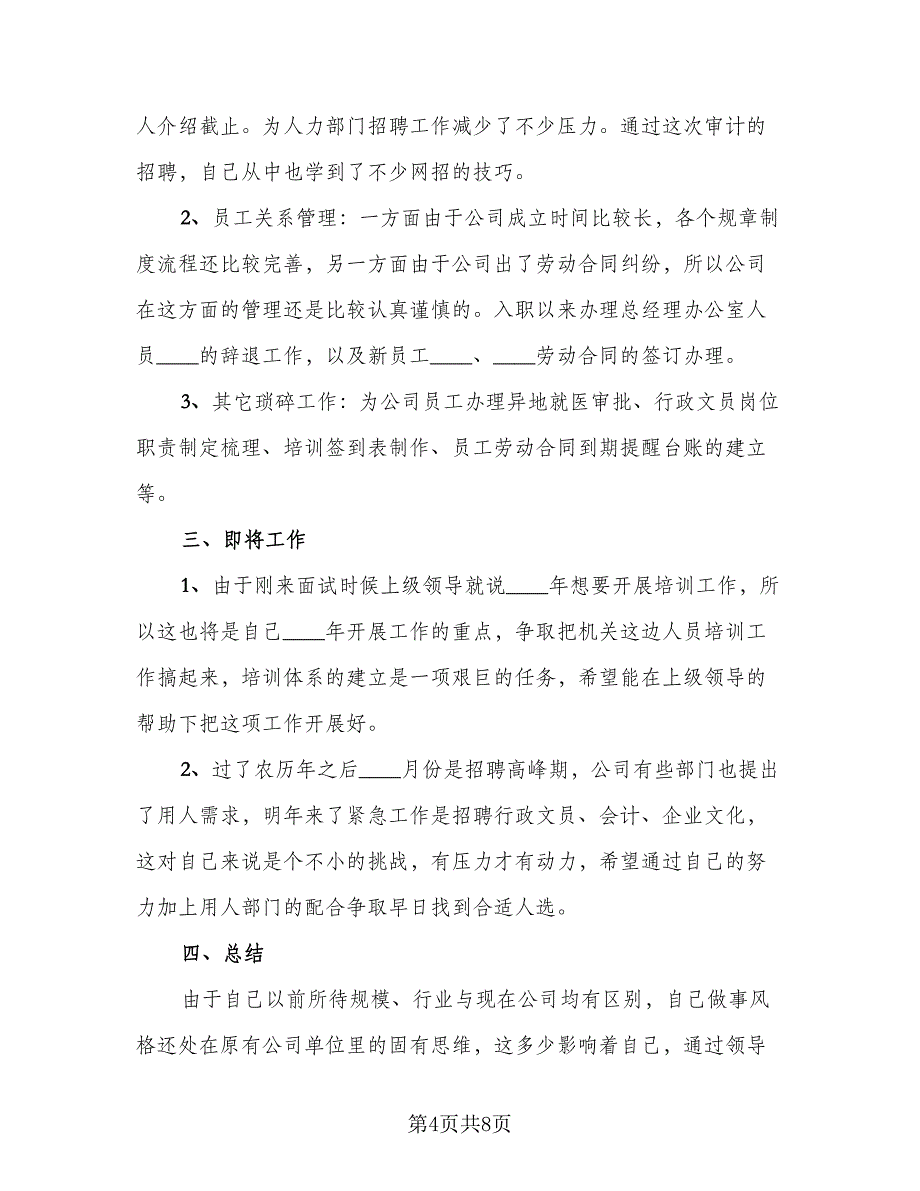 人介绍截止。为人力部门招聘工作减少了不少压力。通过这次审计的
招聘，自己从中也学到了不少网招的技巧。
2、员工关系管理：一方面由于公司成立时间比较长，各个规章制
度流程还比较完善，另一方面由于公司出了劳动合同纠纷，所以公司
在这方面的管理还是比较认真谨慎的。入职以来办理总经理办公室人
员____的辞退工作，以及新员工____、____劳动合同的签订办理。
3、其它琐碎工作：为公司员工办理异地就医审批、行政文员岗位
职责制定梳理、培训签到表制作、员工劳动合同到期提醒台账的建立
等。
三、即将工作
1、由于刚来面试时候上级领导就说____年想要开展培训工作，所
以这也将是自己____年开展工作的重点，争取把机关这边人员培训工
作搞起来，培训体系的建立是一项艰巨的任务，希望能在上级领导的
帮助下把这项工作开展好。
2、过了农历年之后____月份是招聘高峰期，公司有些部门也提出
了用人需求，明年来了紧急工作是招聘行政文员、会计、企业文化，
这对自己来说是个不小的挑战，有压力才有动力，希望通过自己的努
力加上用人部门的配合争取早日找到合适人选。
四、总结
由于自己以前所待规模、行业与现在公司均有区别，自己做事风
格还处在原有公司单位里的固有思维，这多少影响着自己，通过领导
第4页共8页